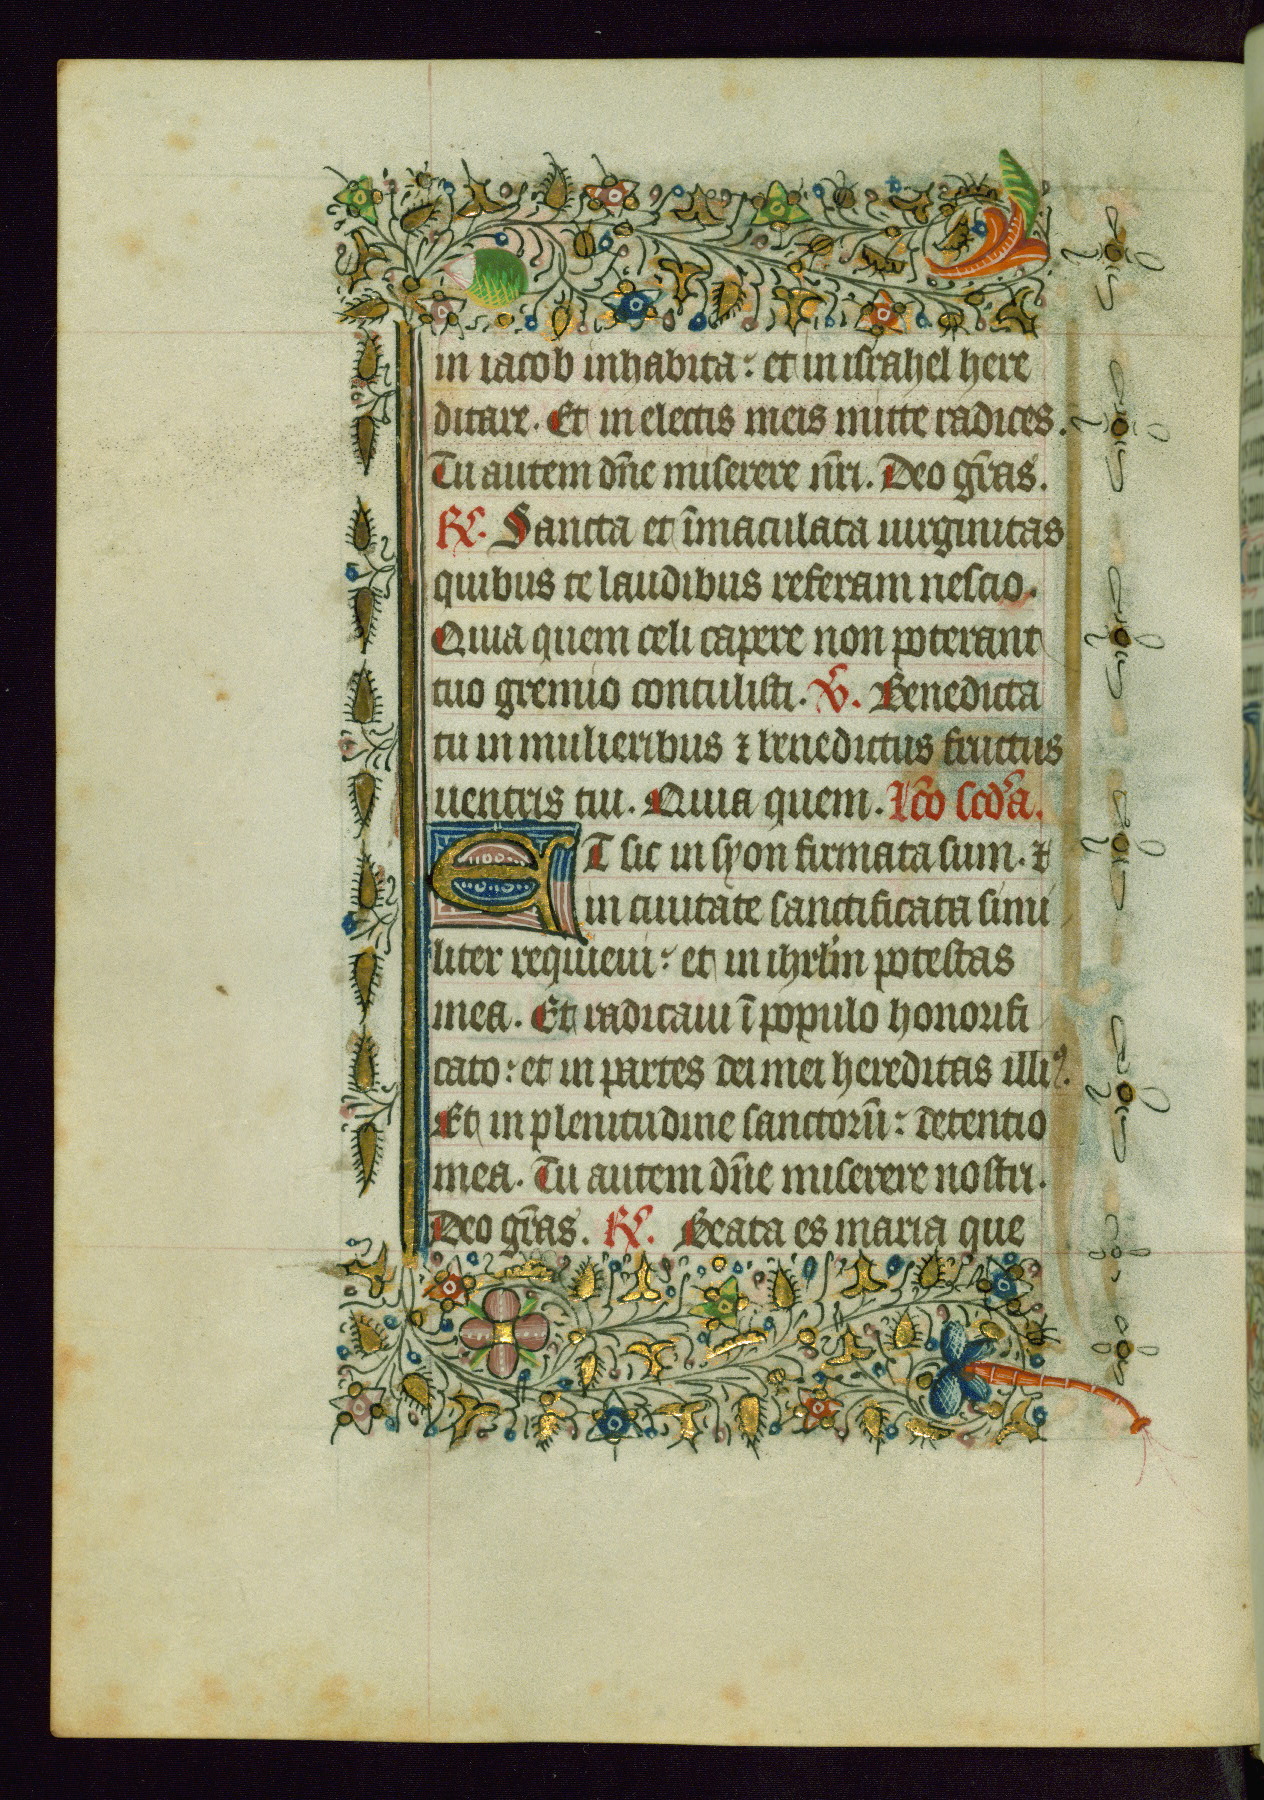 in iacob inhabita : et in israhel here
ditare . Et in electis meis mitte radices .
Tu autem dn̄e miserere nr̄i . Deo gr̄as .
R̄ . Sancta et īmaculata uirginitas
quibus te laudibus referam nescio .
Quia quem celi capere non poterant
tuo gremio contulisti . V̄ . Benedicta
tu in mulieribus ⁊ benedictus fructus
uentris tui . Quia quem . Lc̄o scd̄a .
ET sic in syon firmata sum . ⁊
in ciuitate sanctificata simi
liter requieui : et in ihrl̄m potestas
mea . Et radicaui ī populo honorifi
cato : et in partes dei mei hereditas illiꝰ .
Et in plenitudine sanctorū : detentio
mea . Tu autem dn̄e miserere nostri .
Deo gr̄as . R̄ . Beata es maria que